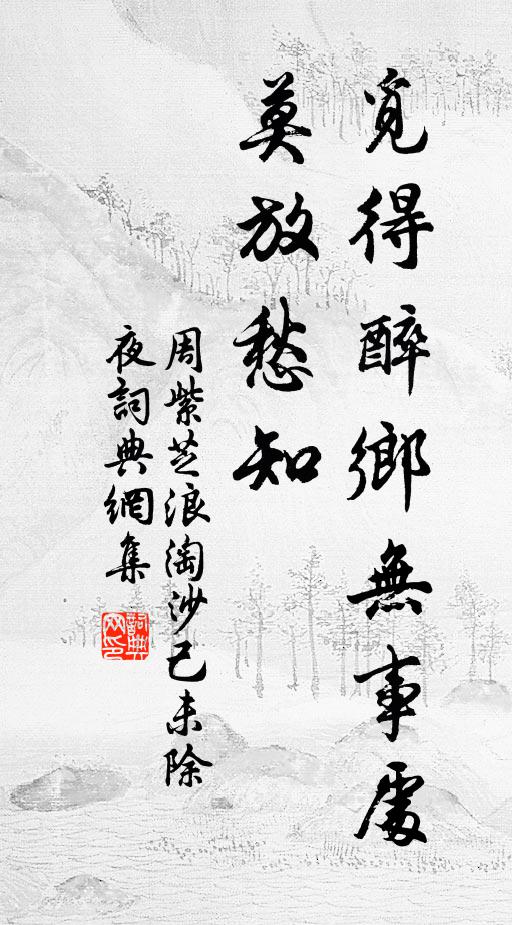 覓得醉鄉無事處
莫放愁知
周紫芝浪淘沙己未除
夜詞典網集
詞典网印